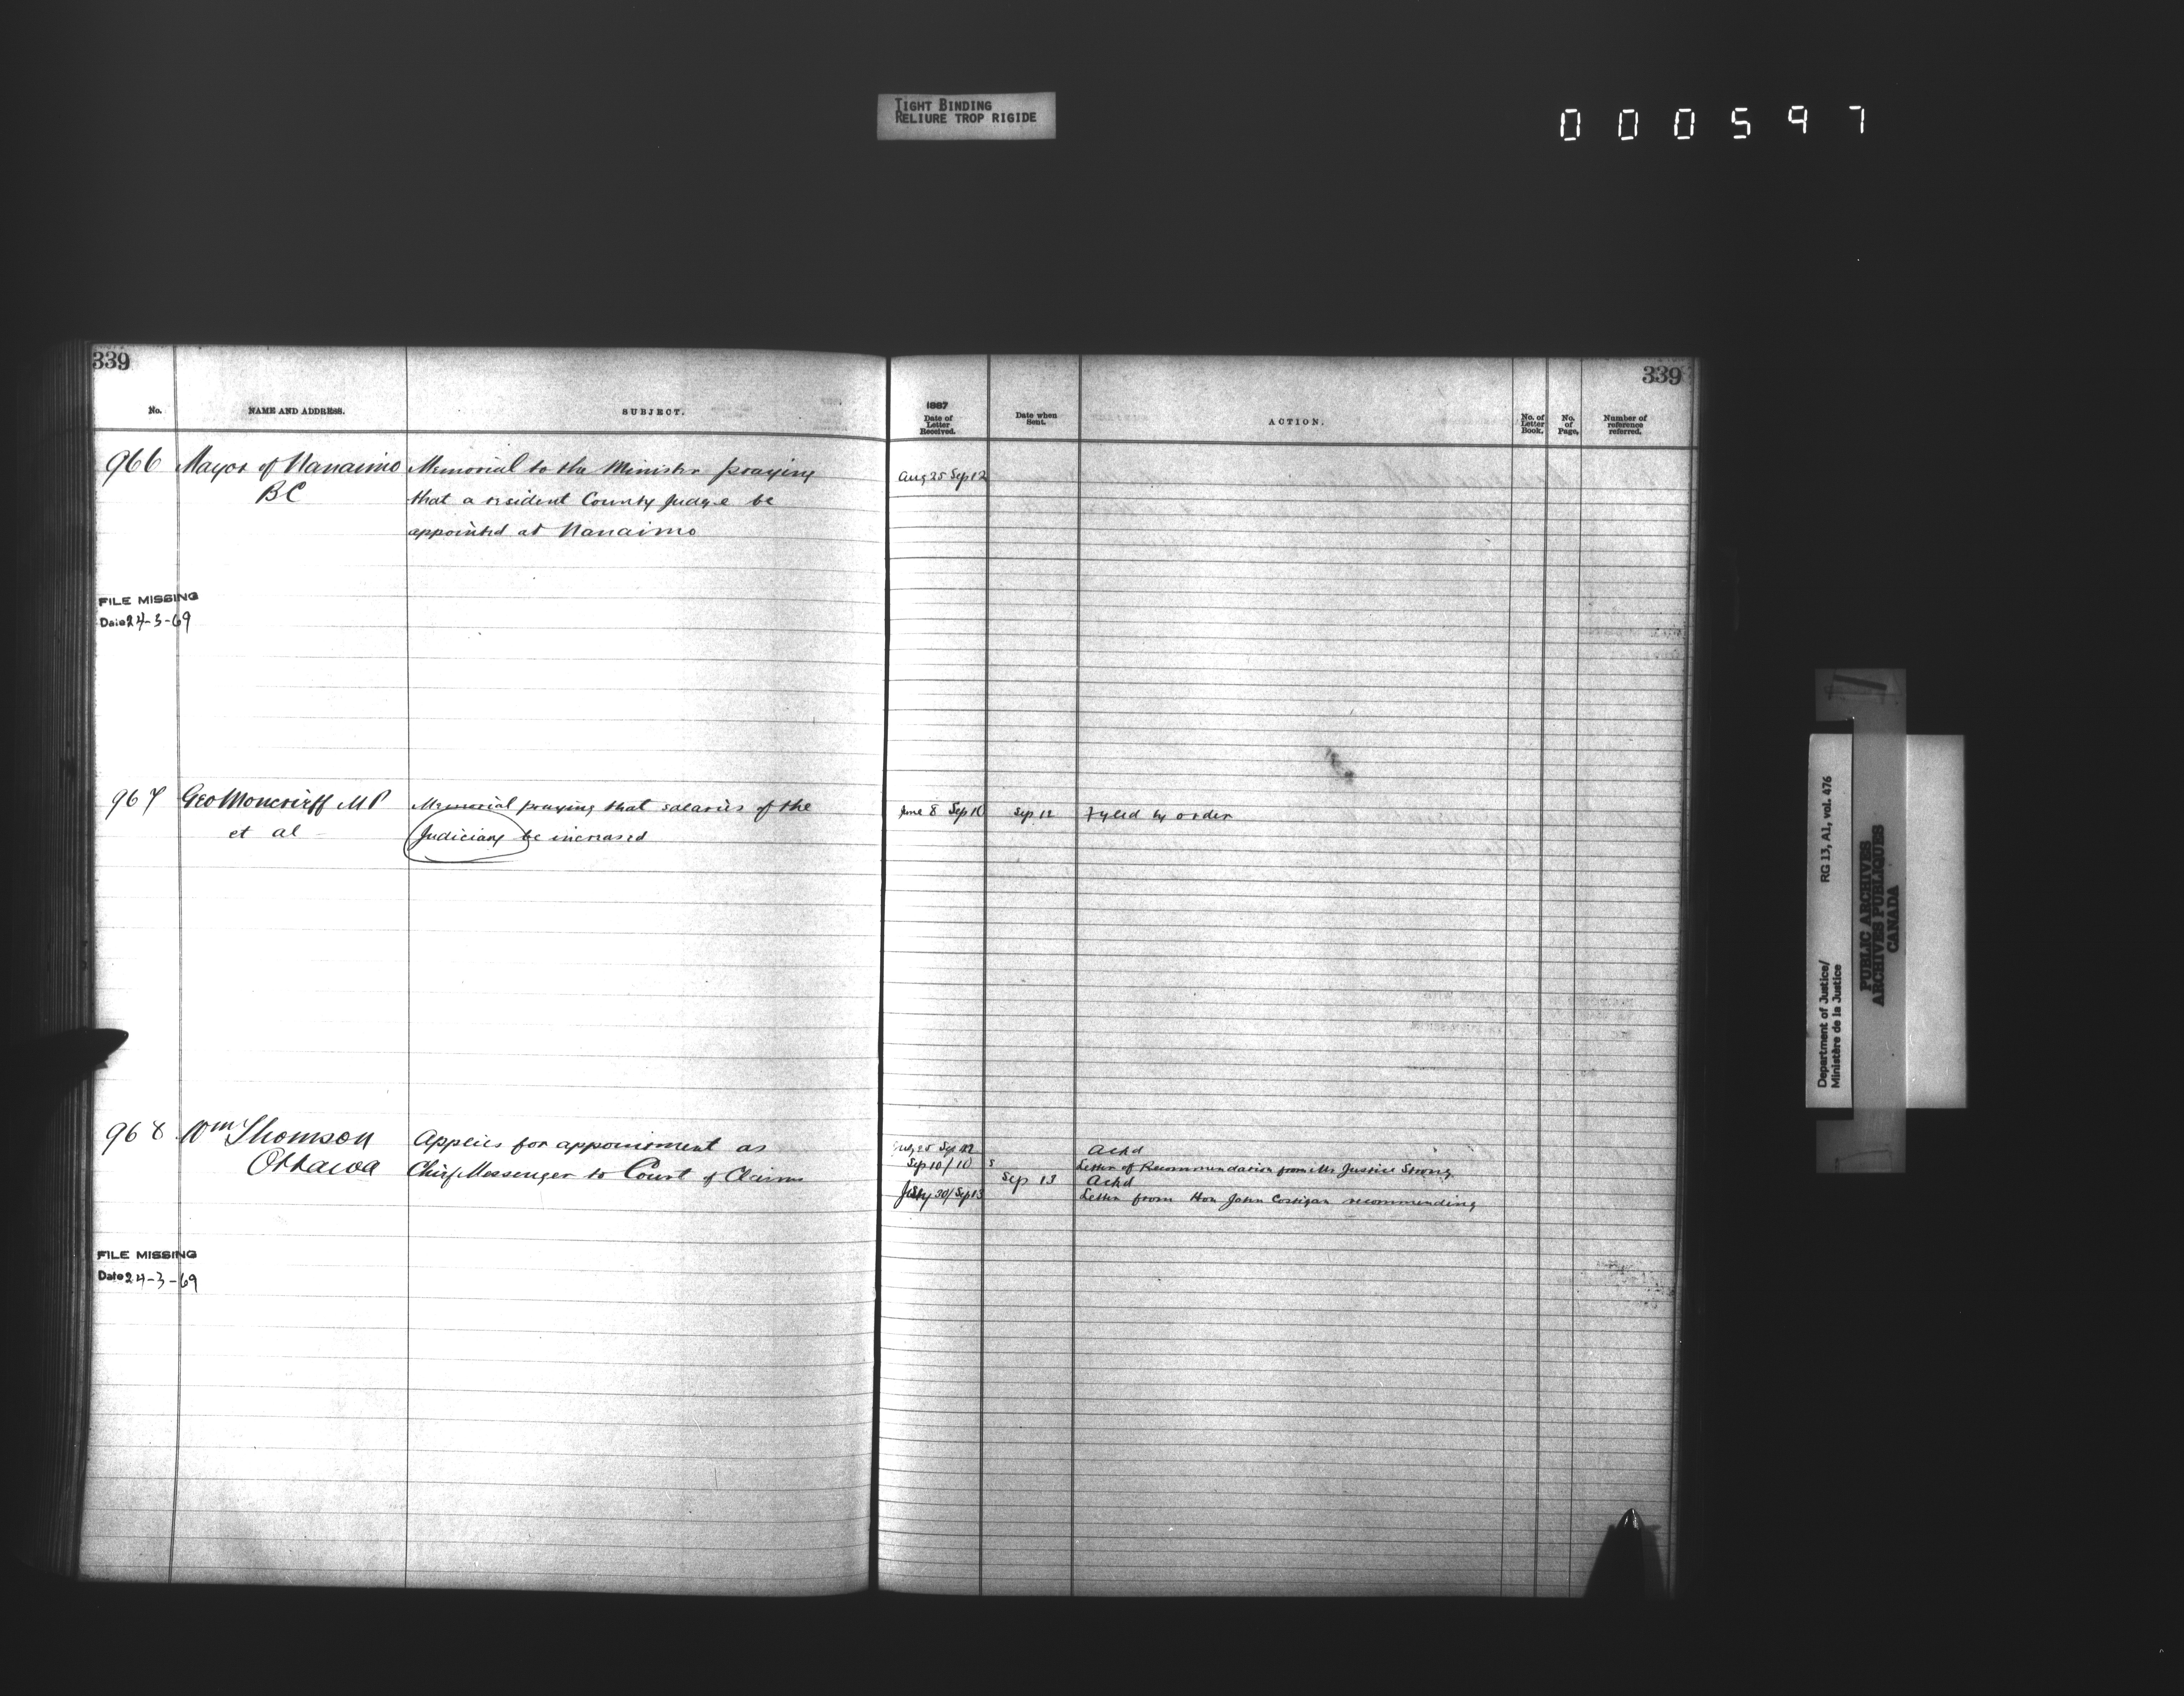 TIGHT BINDING
RELIURE TROP RIGIDE
000597
339
No.
NAME AND ADDRESS.
SUBJECT.
966
Mayor of Nanaimo
BC
Memorial to the Minister praying
that a resident County Judge be
appointed at Nanaimo
FILE MISSING
Date 24-3-69
967
Geo Moncrieff MP
et al
Memorial praying that salaries of the
Judiciary be increased
968
Wm Thomson
Ottawa
Applies for appointment as
Chief Messenger to Court of Claims
FILE MISSING
Date 24-3-69
339
1887
Date of
Letter
Received.
Date when
Sent.
ACTION.
No. of
Letter
Book.
No.
of
Page.
Number of
reference
referred.
Aug 25 Sep 12
June 8 Sep 10
Sep 12
Fyled by order
25 Sep 12
Ackd
Sep 10/10
Letter of Recommendation from Mr Justice Strong
Sep 13
Ackd
July 30/Sep 13
Letter from Hon John Costigan recommending
Department of Justice/
Ministère de la Justice
RG 13, A1, vol. 476
PUBLIC ARCHIVES
ARCHIVES PUBLIQUES
CANADA